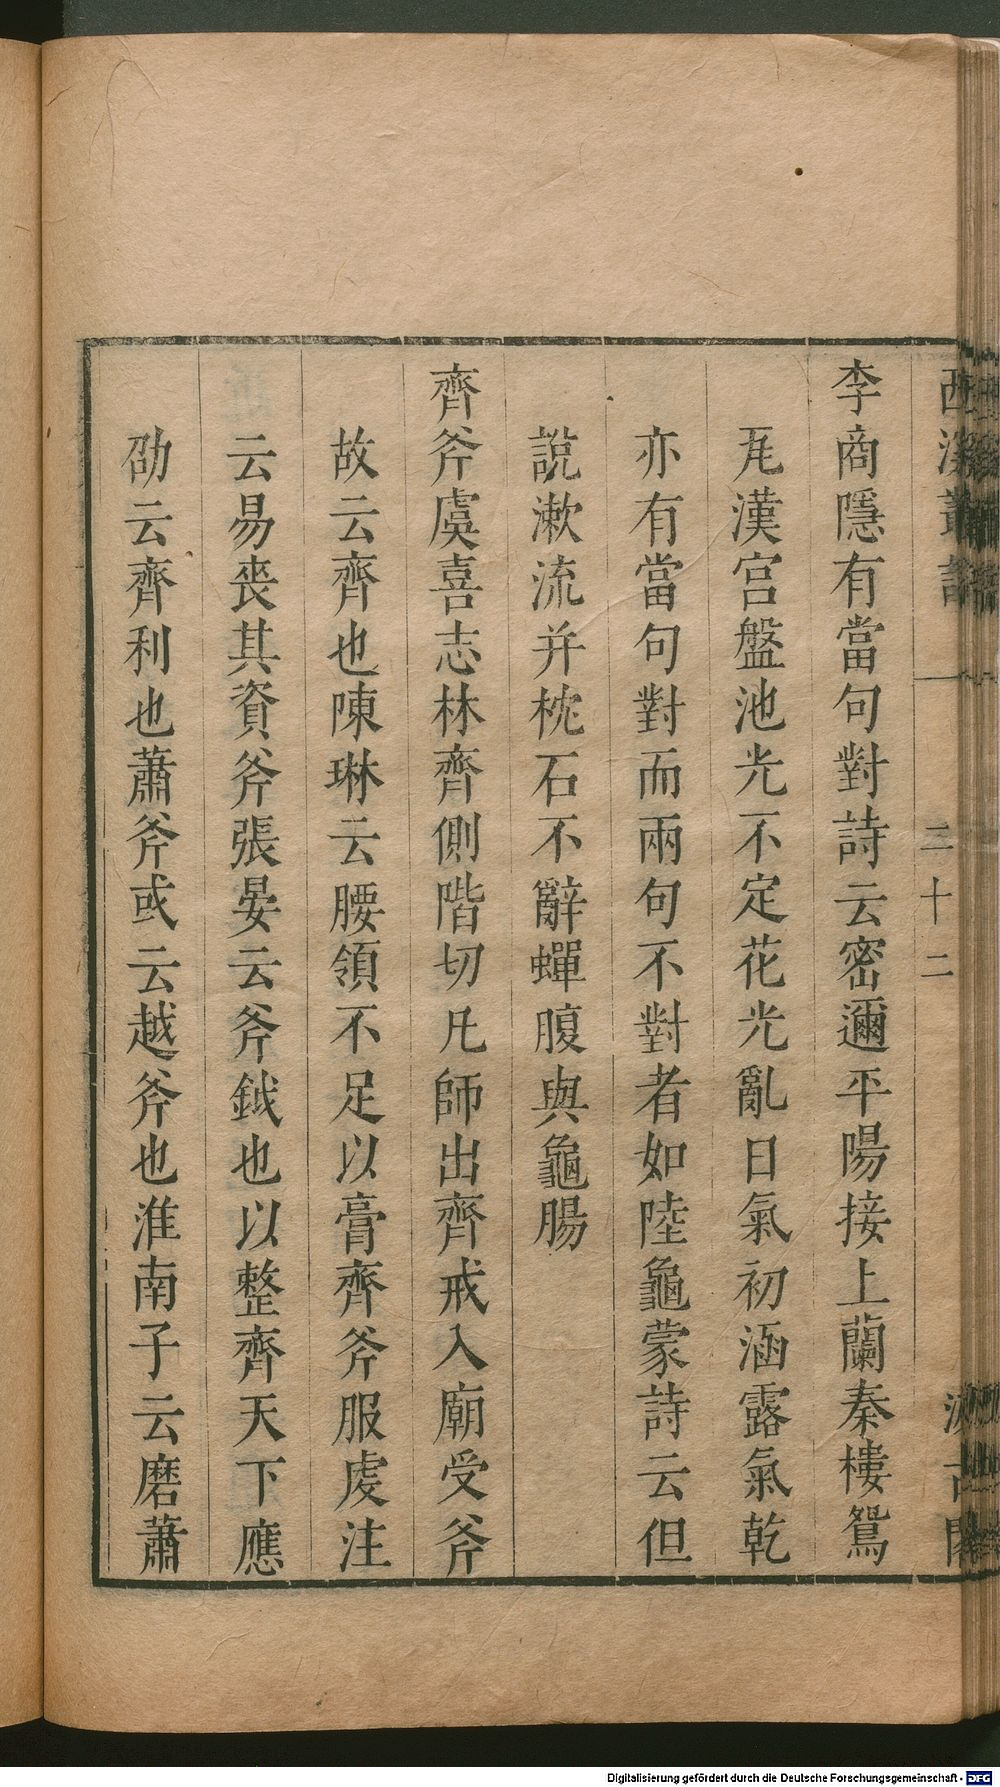 李商隱有當句對詩云密邇平陽接上蘭秦樓鴛
尾漢宮盤池光不定花光亂日氣初涵露氣乾
亦有當句對而兩句不對者如陸龜蒙詩云但
說漱流并枕石不辭蟬腹與龜腸
齊斧虞喜志林齊側階切凡師出齊戒入廟受斧
故云齊也陳琳云腰領不足以膏齊斧服虔注
云易喪其資斧張晏云斧鉞也以整齊天下應
劭云齊利也蕭斧或云越斧也淮南子云磨蕭
西溪叢語
三十二
汲古閣
Digitalisierung gefördert durch die Deutsche Forschungsgemeinschaft - DFG